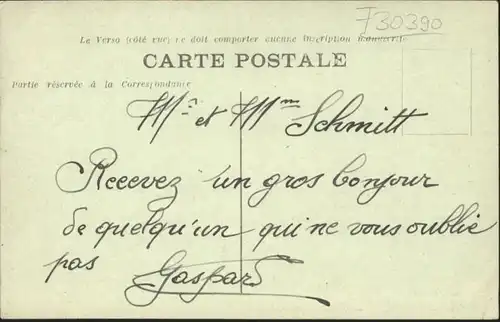 730390
Le Verso (côté vue) ne doit comporter aucune inscription manuscrite
CARTE POSTALE
Partie réservée à la Correspondance
Mr et Mme Schmitt
Recevez un gros bonjour
de quelqu'un qui ne vous oublie
pas Gaspard